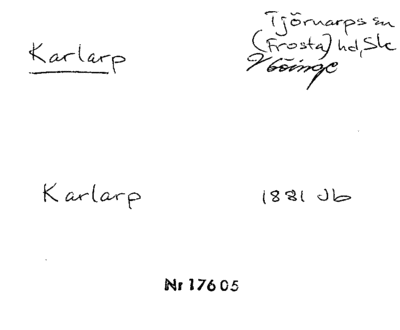 Karlarp
Tjörnarps sn
(Frosta) hd, Sk
Karlarp
1881 Jb
Nr 17605